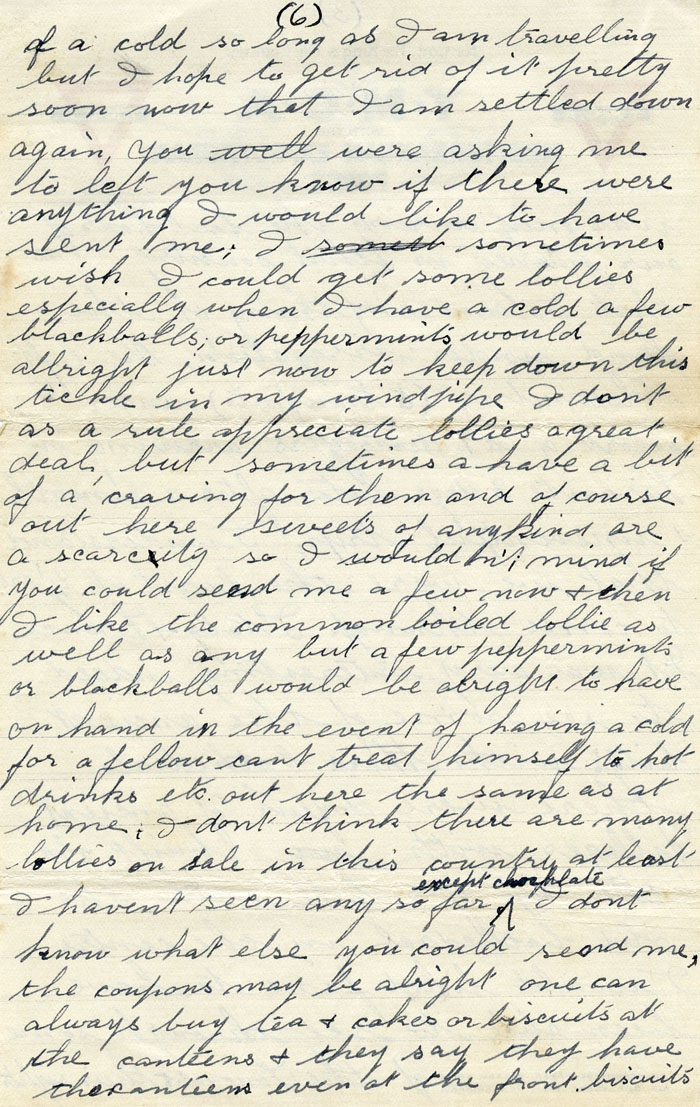 (6)
of a cold so long as I am travelling
but I hope to get rid of it pretty
soon now that I am settled down
again, you well were asking me
to let you know if there were
anything I would like to have
sent me; I somett sometimes
wish I could get some lollies
especially when I have a cold a few
blackballs, or peppermints would be
allright just now to keep down this
tickle in my windpipe I don't
as a rule appreciate lollies a great
deal, but sometimes a have a bit
of a craving for them and of course
out here sweets of any kind are
a scarcity so I wouldn't mind if
you could send me a few now & then
I like the common boiled lollie as
well as any but a few peppermints
or blackballs would be alright to have
on hand in the event of having a cold
for a fellow cant treat himself to hot
drinks etc. out here the same as at
home; I dont think there are many
lollies on sale in this country at least
except chocolate
I havent seen any so far, I dont
know what else you could send me,
the coupons may be alright one can
always buy tea & cakes or biscuits at
the canteens & they say they have
the canteens even at the front. biscuits